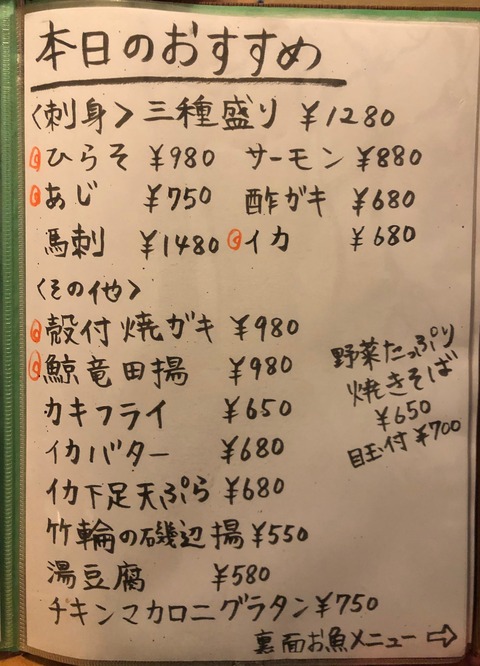 本日のおすすめ
〈刺身〉三種盛り ¥1280
ひらそ ¥980 サーモン ¥880
あじ ¥750 酢ガキ ¥680
馬刺 ¥1480 イカ ¥680
〈その他〉
殻付焼ガキ ¥980
鯨竜田揚 ¥980
カキフライ ¥650
イカバター ¥680
イカ下足天ぷら ¥680
竹輪の磯辺揚 ¥550
湯豆腐 ¥580
チキンマカロニグラタン ¥750
野菜たっぷり
焼きそば
¥650
目玉付 ¥700
裏面お魚メニュー ⇨